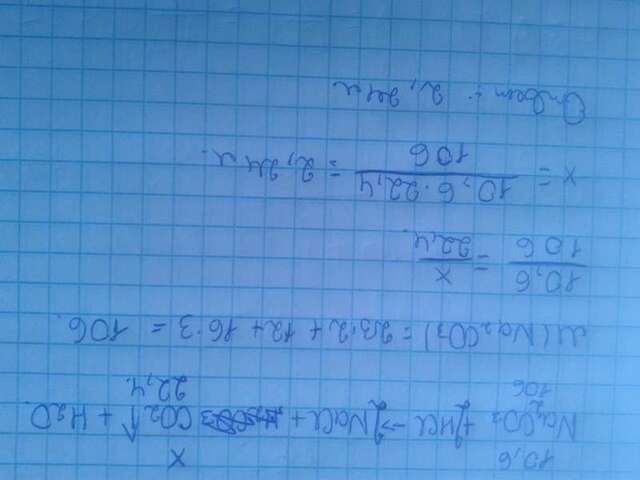 10,6 x
Na2CO3 + 2HCl → 2NaCl + CO2↑ + H2O.
106 22,4.
M(Na2CO3) = 23·2 + 12 + 16·3 = 106.
10,6/106 = x/22,4.
x = 10,6·22,4/106 = 2,24л.
Ответ: 2,24л